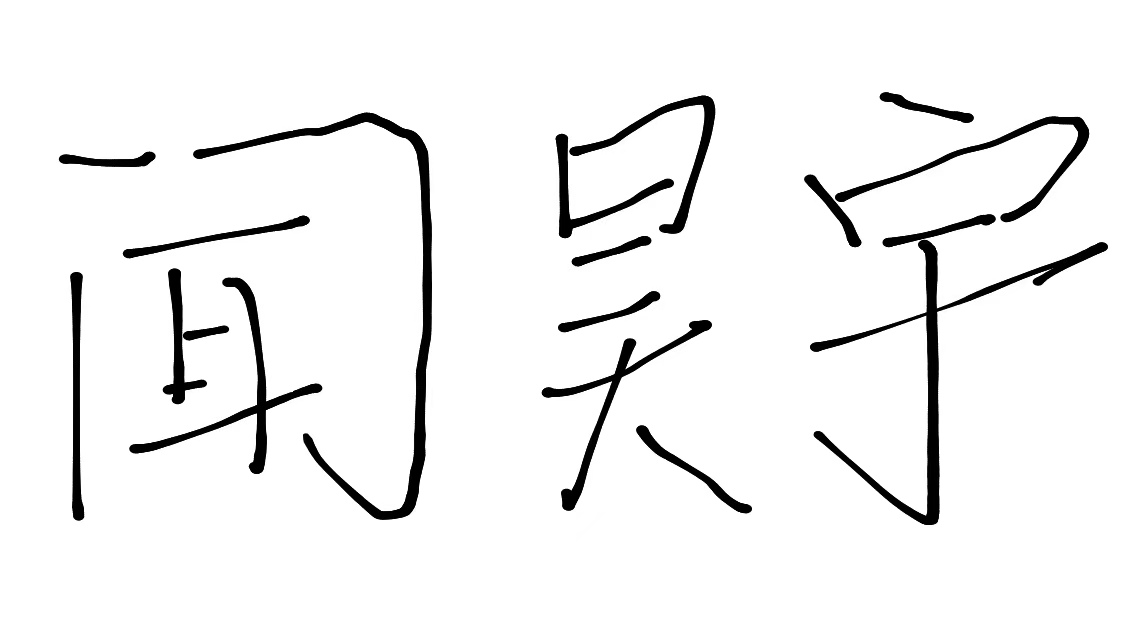 闻昊宇